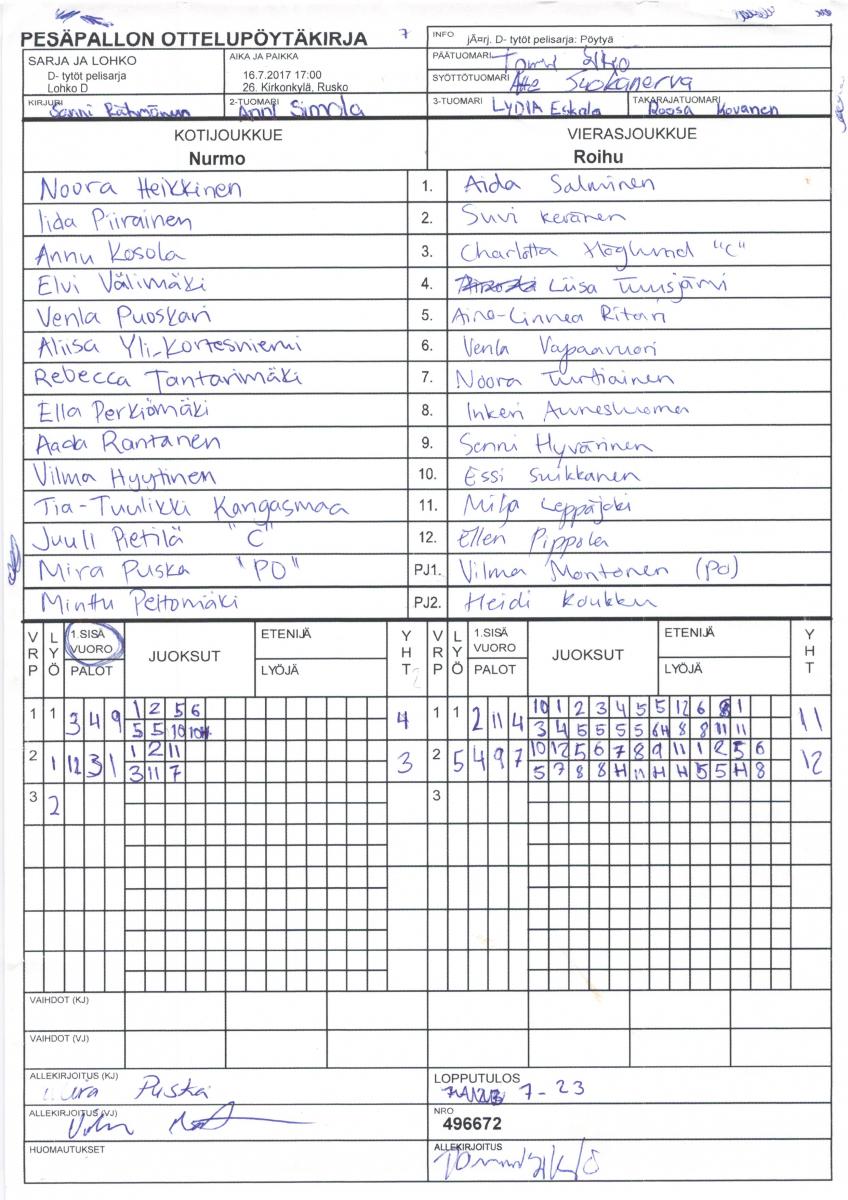 PESÄPALLON OTTELUPÖYTÄKIRJA 7
INFO jÃ¤rj. D- tytöt pelisarja: Pöytyä
SARJA JA LOHKO
D- tytöt pelisarja
Lohko D
AIKA JA PAIKKA
16.7.2017 17:00
26. Kirkonkylä, Rusko
PÄÄTUOMARI
SYÖTTÖTUOMARI Suokanerva
KIRJURI Sanni
2-TUOMARI Anni Simola
3-TUOMARI LYDIA Eskola
TAKARAJATUOMARI Roosa Kovanen
KOTIJOUKKUE VIERASJOUKKUE
Nurmo Roihu
Noora Heikkinen 1. Aida Salminen
Iida Piirainen 2. Suvi Keränen
Annu Kosola 3. Charlotta Höglund "C"
Elvi Välimäki 4. Liisa Tuusjärvi
Venla Puoskari 5. Aino-Linnea Ritari
Aliisa Yli-Kortesniemi 6. Venla Vapaavuori
Rebecca Tantarimäki 7. Noora Turtiainen
Ella Perkiömäki 8. Inkeri Annesluoma
Aada Rantanen 9. Senni Hyvärinen
Vilma Hyytinen 10. Essi Suikkanen
Tia-Tuulikki Kangasmaa 11. Milja Leppäjoki
Juuli Pietilä "C" 12. Ellen Pippola
Mira Puska "PO" PJ1. Vilma Montonen (PO)
Minttu Peltomäki PJ2. Heidi Koukku
VRP LYÖ 1.SISÄ VUORO PALOT JUOKSUT ETENIJÄ LYÖJÄ YHT VRP LYÖ 1.SISÄ VUORO PALOT JUOKSUT ETENIJÄ LYÖJÄ YHT
1 1 3 4 9 1 2 5 6 4 1 1 2 11 4 10 1 2 3 4 5 5 12 6 8 1 11
5 5 10 10H 3 4 5 5 5 5 6H 8 8 11 11
2 1 12 3 1 1 2 11 3 2 5 4 9 7 10 12 5 6 7 8 9 11 1 2 5 6 12
3 11 7 5 7 8 8 H 11 H H 5 5 H 8
3 2 3
VAIHDOT (KJ)
VAIHDOT (VJ)
ALLEKIRJOITUS (KJ) Puska
LOPPUTULOS 7-23
ALLEKIRJOITUS (VJ)
NRO
496672
HUOMAUTUKSET
ALLEKIRJOITUS